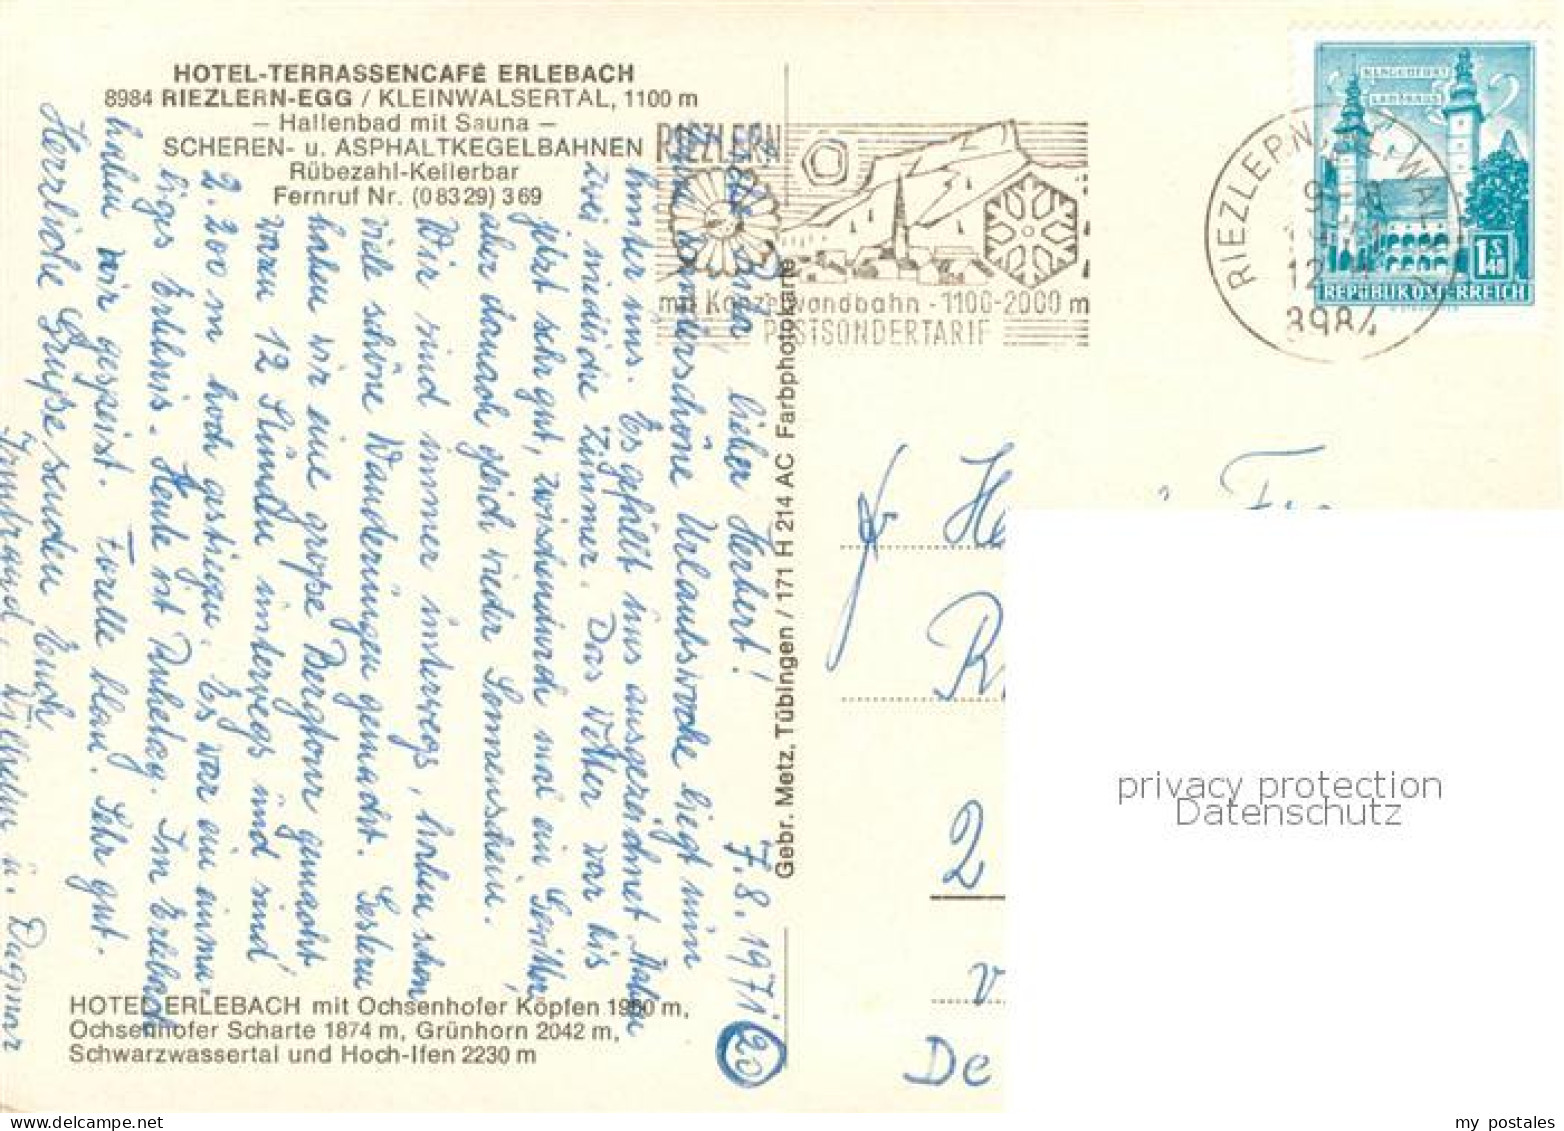 HOTEL-TERRASSENCAFÉ ERLEBACH
8984 RIEZLERN-EGG / KLEINWALSERTAL, 1100 m
— Hallenbad mit Sauna —
SCHEREN- u. ASPHALTKEGELBAHNEN
Rübezahl-Kellerbar
Fernruf Nr. (08329) 369
RIEZLERN
mit Kanzelwandbahn - 1100-2000 m
POSTSONDERTARIF
KLAGENFURT
LANDHAUS
1 S 40
REPUBLIK ÖSTERREICH
RIEZLERN
12
8984
7.8.1971
lieber Herbert!
wunderschöne Urlaubswoche liegt nun
hinter uns. Es gefällt uns ausgezeichnet. Haben
zwei niedliche Zimmer. Das Wetter war bis
jetzt sehr gut, zwischendurch mal ein Gewitter,
aber danach gleich wieder Sonnenschein.
Wir sind immer unterwegs, haben schon
viele schöne Wanderungen gemacht. Gestern
haben wir eine große Bergtour gemacht,
waren 12 Stunden unterwegs und sind
2.200 m hoch gestiegen. Es war ein einma-
liges Erlebnis. Heute ist Ruhetag. Im Erlebach
haben wir gespeist. Forelle blau. Sehr gut.
Herzliche Grüße senden Euch
u. Dagmar
Gebr. Metz, Tübingen / 171 H 214 AC Farbphotokarte
HOTEL ERLEBACH mit Ochsenhofer Köpfen 1950 m,
Ochsenhofer Scharte 1874 m, Grünhorn 2042 m,
Schwarzwassertal und Hoch-Ifen 2230 m
20
He
2
De
privacy protection
Datenschutz
my postales